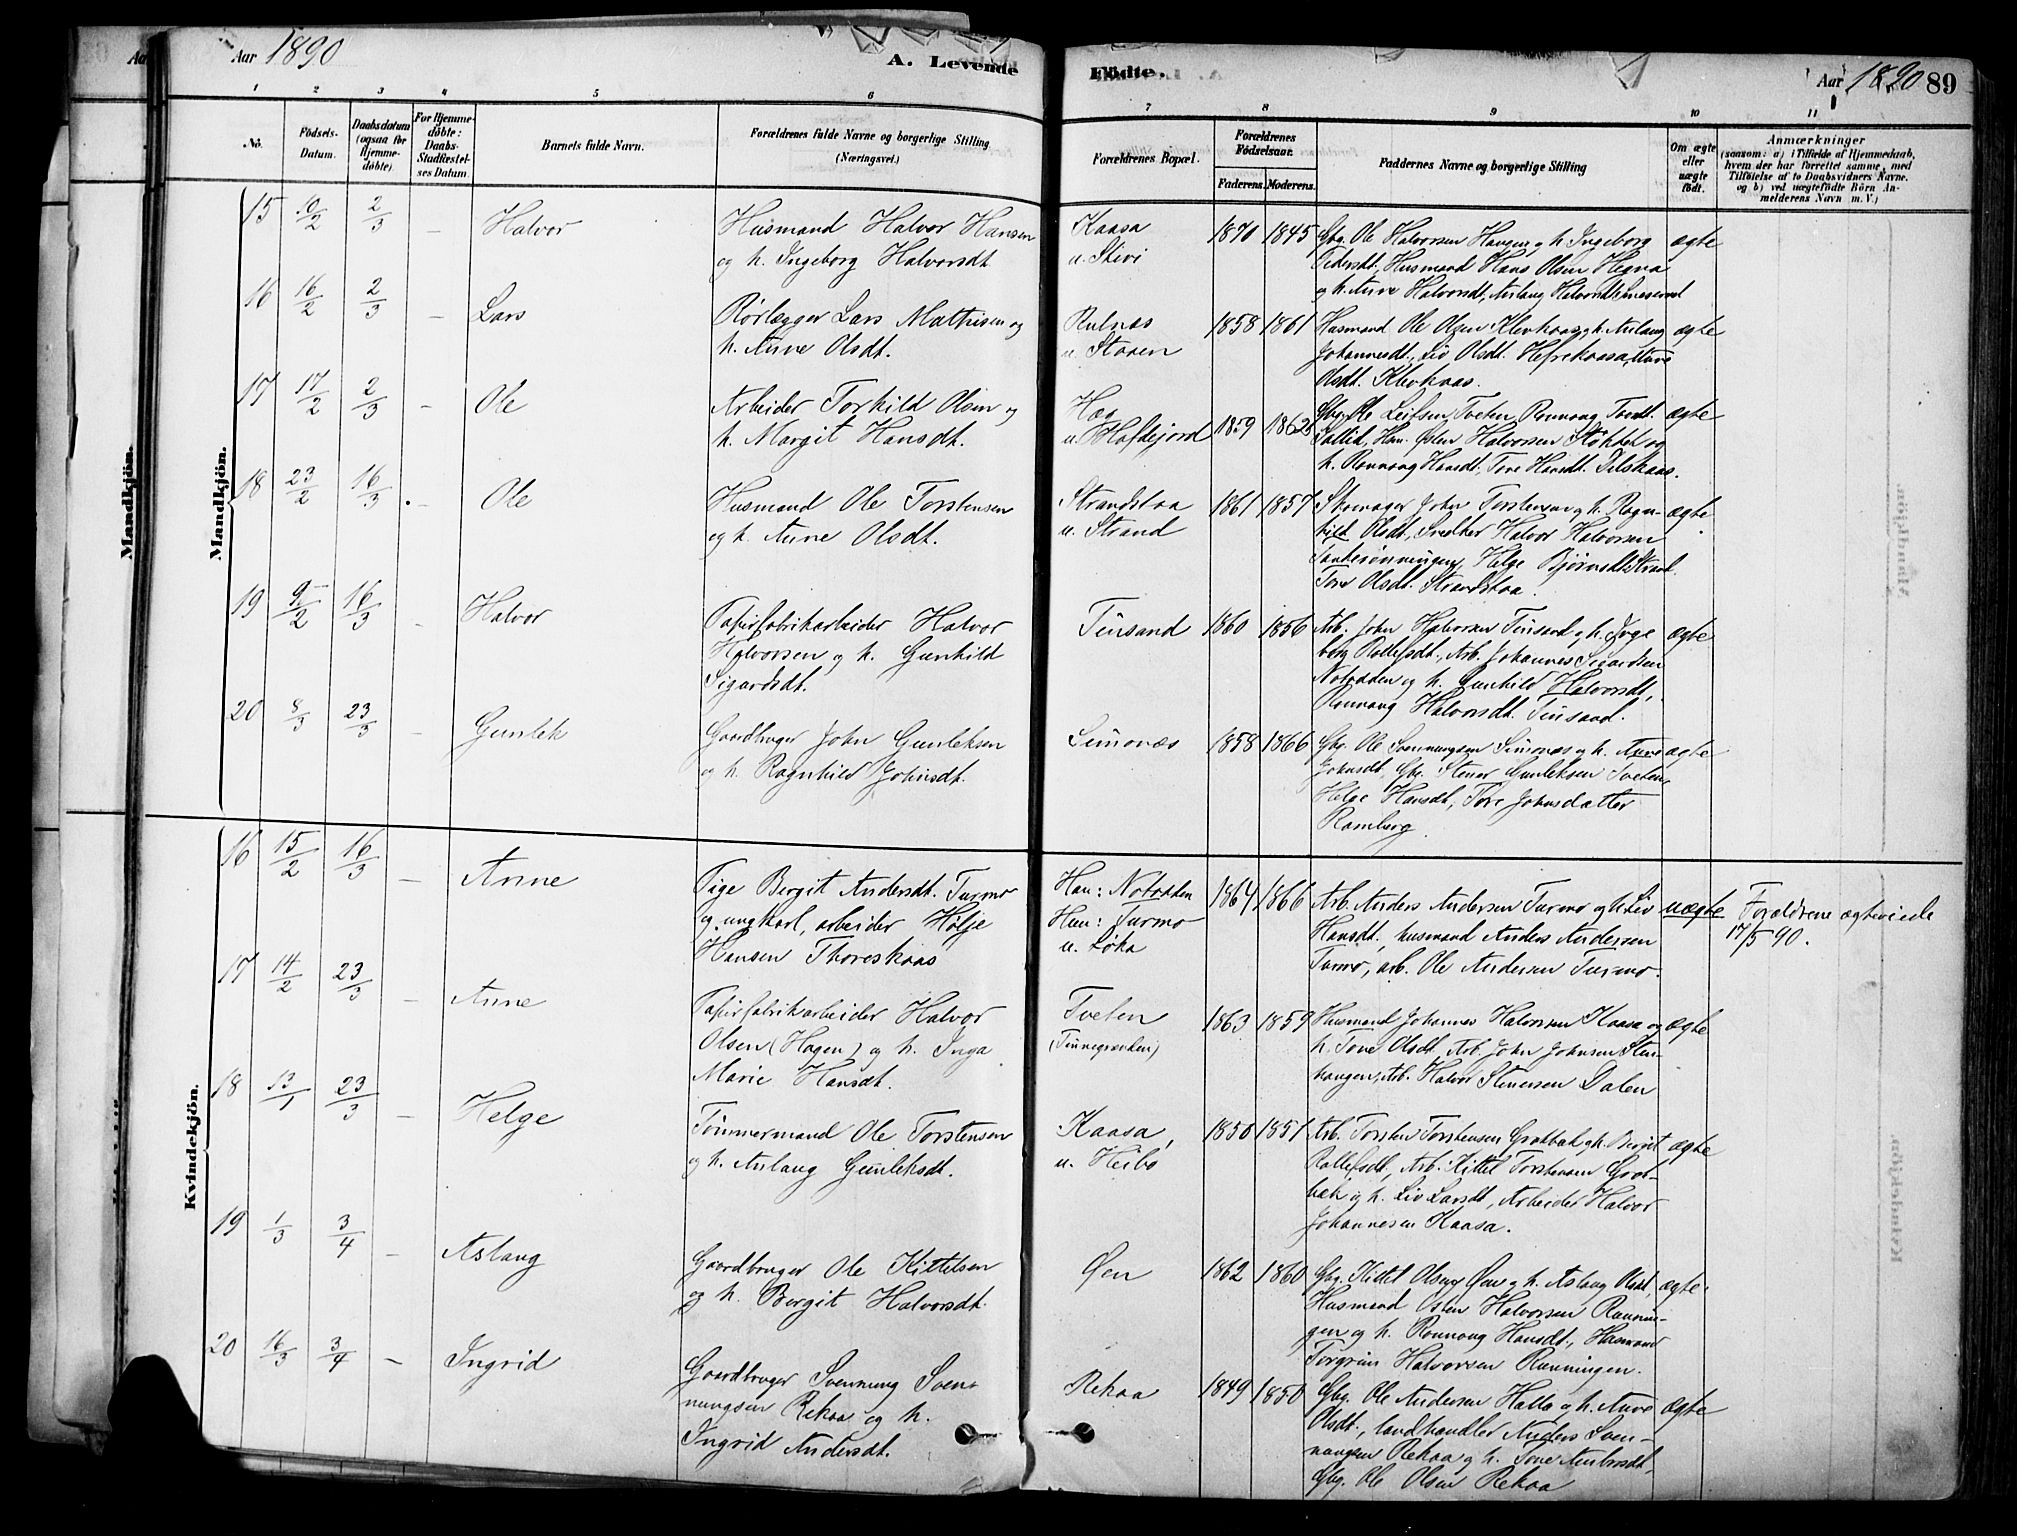 Aar 1890
A. Levende
Födte.
Aar 1890 89
1 2 3 4 5 6 7 8 9 10 11
No.
Födsels-
Datum.
Daabsdatum
(ogsaa for
Hjemme-
döbte).
For Hjemme-
döbte:
Daabs-
Stadfæstel-
ses Datum.
Barnets fulde Navn.
Forældrenes fulde Navne og borgerlige Stilling
(Næringsvei.)
Forældrenes Bopæl.
Forældrenes
Födselsaar.
Faderens. Moderens.
Faddernes Navne og borgerlige Stilling
Om ægte
eller
uægte
födt.
Anmærkninger
(saasom: a) i Tilfælde af Hjemmedaab,
hvem der har forrettet samme, med
Tilföielse af to Daabsvidners Navne,
og b) ved uægtefödte Börn An-
melderens Navn m. V.)
Mandkjön.
Mandkjön.
15 2/3 - Halvor
Husmand Halvor Hansen
og h. Ingeborg Halvorsdt
Kaasa
u. Stivi
1870 1845
Gbg. Ole Halvorsen Haugen og h. Ingeborg
Pedersdt., Husmand Hans Olsen Hegna
og h. Anne Halvorsdt, Aslaug Halvorsdt
ægte
16 16/2 2/3 - Lars
Rørlægger Lars Mathisen og
h. Anne Olsdt.
u. Staaen
1858 1861
Husmand Ole Olsen Klevkaas og h. Aslaug
Johannesdt., Liv Olsdt. Anne
Olsdt. Klevkaas.
ægte
17 17/2 2/3 - Ole
Arbeider Torkild Olsen og
h. Margit Hansdt.
1859 1862
Gbg. Ole Leifsen Tveten, Rønnoug
Halvorsen og
h. Rønnoug Hansdt., Tove Hansdt.
ægte
18 23/2 16/3 - Ole
Husmand Ole Torstensen
og h. Anne Olsdt.
Strandstaa
u. Strand
1861 1857
Skomager John Torstensen og h. Ragn-
hild Olsdt., Halvor Halvorsen
Helge Bjørnsdt. Strand.
Tore Olsdt. Strandstaa.
ægte
19 9/2 16/3 Halvor
Papirfabrikarbeider Halvor
Halvorsen og h. Gunhild
Sigurdsdt.
Tinsand
1860 1856
Arb. John Halvorsen Tinsand og h. Inge
berg Rollefsdt., Arb. Johannes Sigurdsen
Notodden og h. Gunhild Halvorsdt.,
Rønnoug Halvorsdt. Tinsand.
ægte
20 8/3 23/3 - Gunlek
Gaardbruger John Gunleksen
og h. Ragnhild Johnsdt.
Simonæs
1858 1866
Gbg. Ole Svenningsen Simonæs og h. Anne
Johnsdt, Gbg. Stener Gunleksen Tveten,
Helge Hansdt, Tore Johnsdatter
Ramberg.
ægte
Kvindekjön.
16 15/2 16/3 - Anne
Pige Bergit Andersdt. Turmo
og ungkarl, arbeider Hølje
Hansen Thoreskaas
Han: Notodden
Hun: Turmo
u. Løka
1864 1866
Arb. Anders Andersen Turmo og h. Liv
Hansdt., husmand Anders Andersen
Turmo, arb. Ole Andersen Turmo.
uægte
Forældrene ægteviede
17/5 90.
17 14/2 23/3 - Anne
Papirfabrikarbeider Halvor
Olsen (Hagen) og h. Inga
Marie Hansdt.
Tveten
(Tinnegrenden)
1863 1859
Husmand Johannes Halvorsen Kaasa og
h. Tone Olsdt, Arb. John Johnsen Sten-
haugen, Arb. Halvor Stenersen Dalen
ægte
18 13/1 23/3 - Helge
Tømmermand Ole Torstensen
og h. Aslaug Gunleksdt.
Kaasa,
u. Heibø
1850 1851
Arb. Torsten Torstensen Grotbæk og h. Bergit
Rollefsdt, Arb. Kittel Torstensen Grot-
bæk og h. Liv Larsdt, Arbeider Halvor
Johannesen Kaasa.
ægte
19 1/3 3/4 - Aslaug
Gaardbruger Ole Kittelsen
og h. Bergit Halvorsdt.
Øen
1862 1860
Gbg. Kittel Olsen Øen og h. Aslaug Olsdt,
Husmand Østen Halvorsen Rønnin-
gen og h. Rønnoug Hansdt., Husmand
Torgrim Halvorsen Rønningen.
ægte.
20 16/3 3/4 - Ingrid
Gaardbruger Svennung Sven-
nungsen Rekaa og h.
Ingrid Andersdt.
Rekaa
1849 1850
Gbg. Ole Andersen Halla og h. Anne
Olsdt., landhandler Anders Sven-
nungsen Rekaa og h. Tone Ambrosdt,
Gbg. Ole Olsen Rekaa
ægte